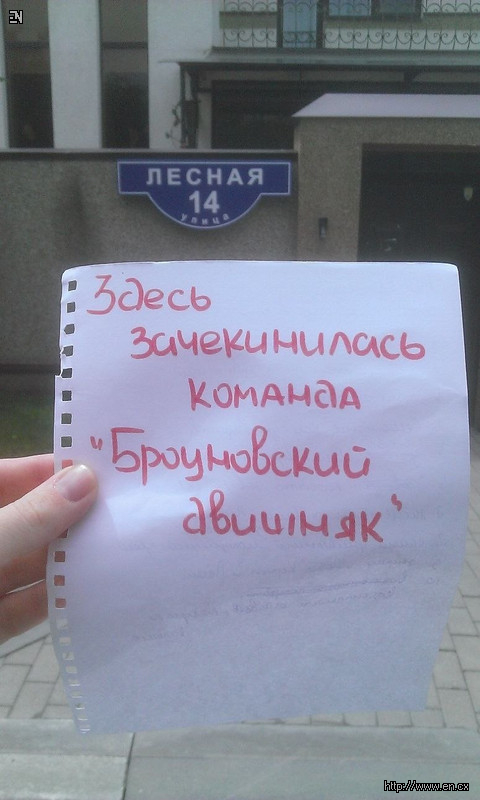 EN
ЛЕСНАЯ
14
улица
Здесь
зачекинилась
команда
"Броуновский
двишняк"
http://www.en.cx